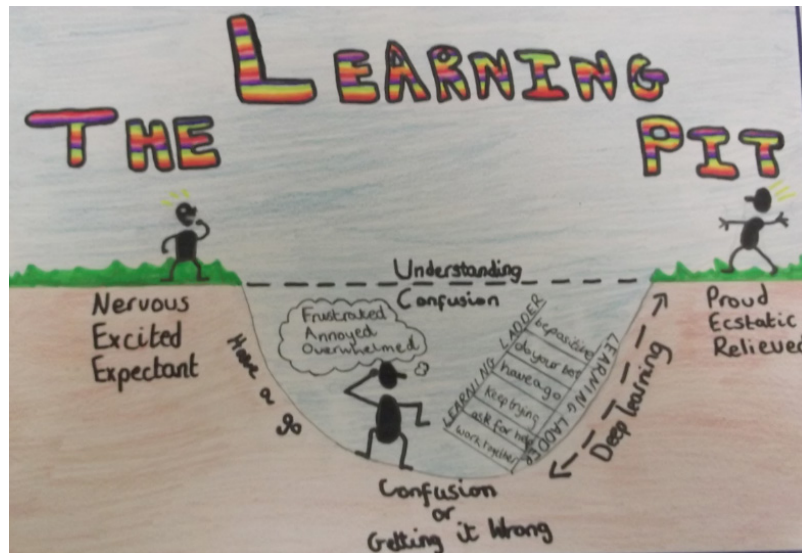 THE LEARNING PIT
Understanding
Confusion
Nervous
Excited
Expectant
Have a go
Frustrated
Annoyed
Overwhelmed
LEARNING LADDER
be positive
do your best
have a go
keep trying
ask for help
work together
LEARNING LADDER
Deep learning
Proud
Ecstatic
Relieved
Confusion
or
Getting it Wrong